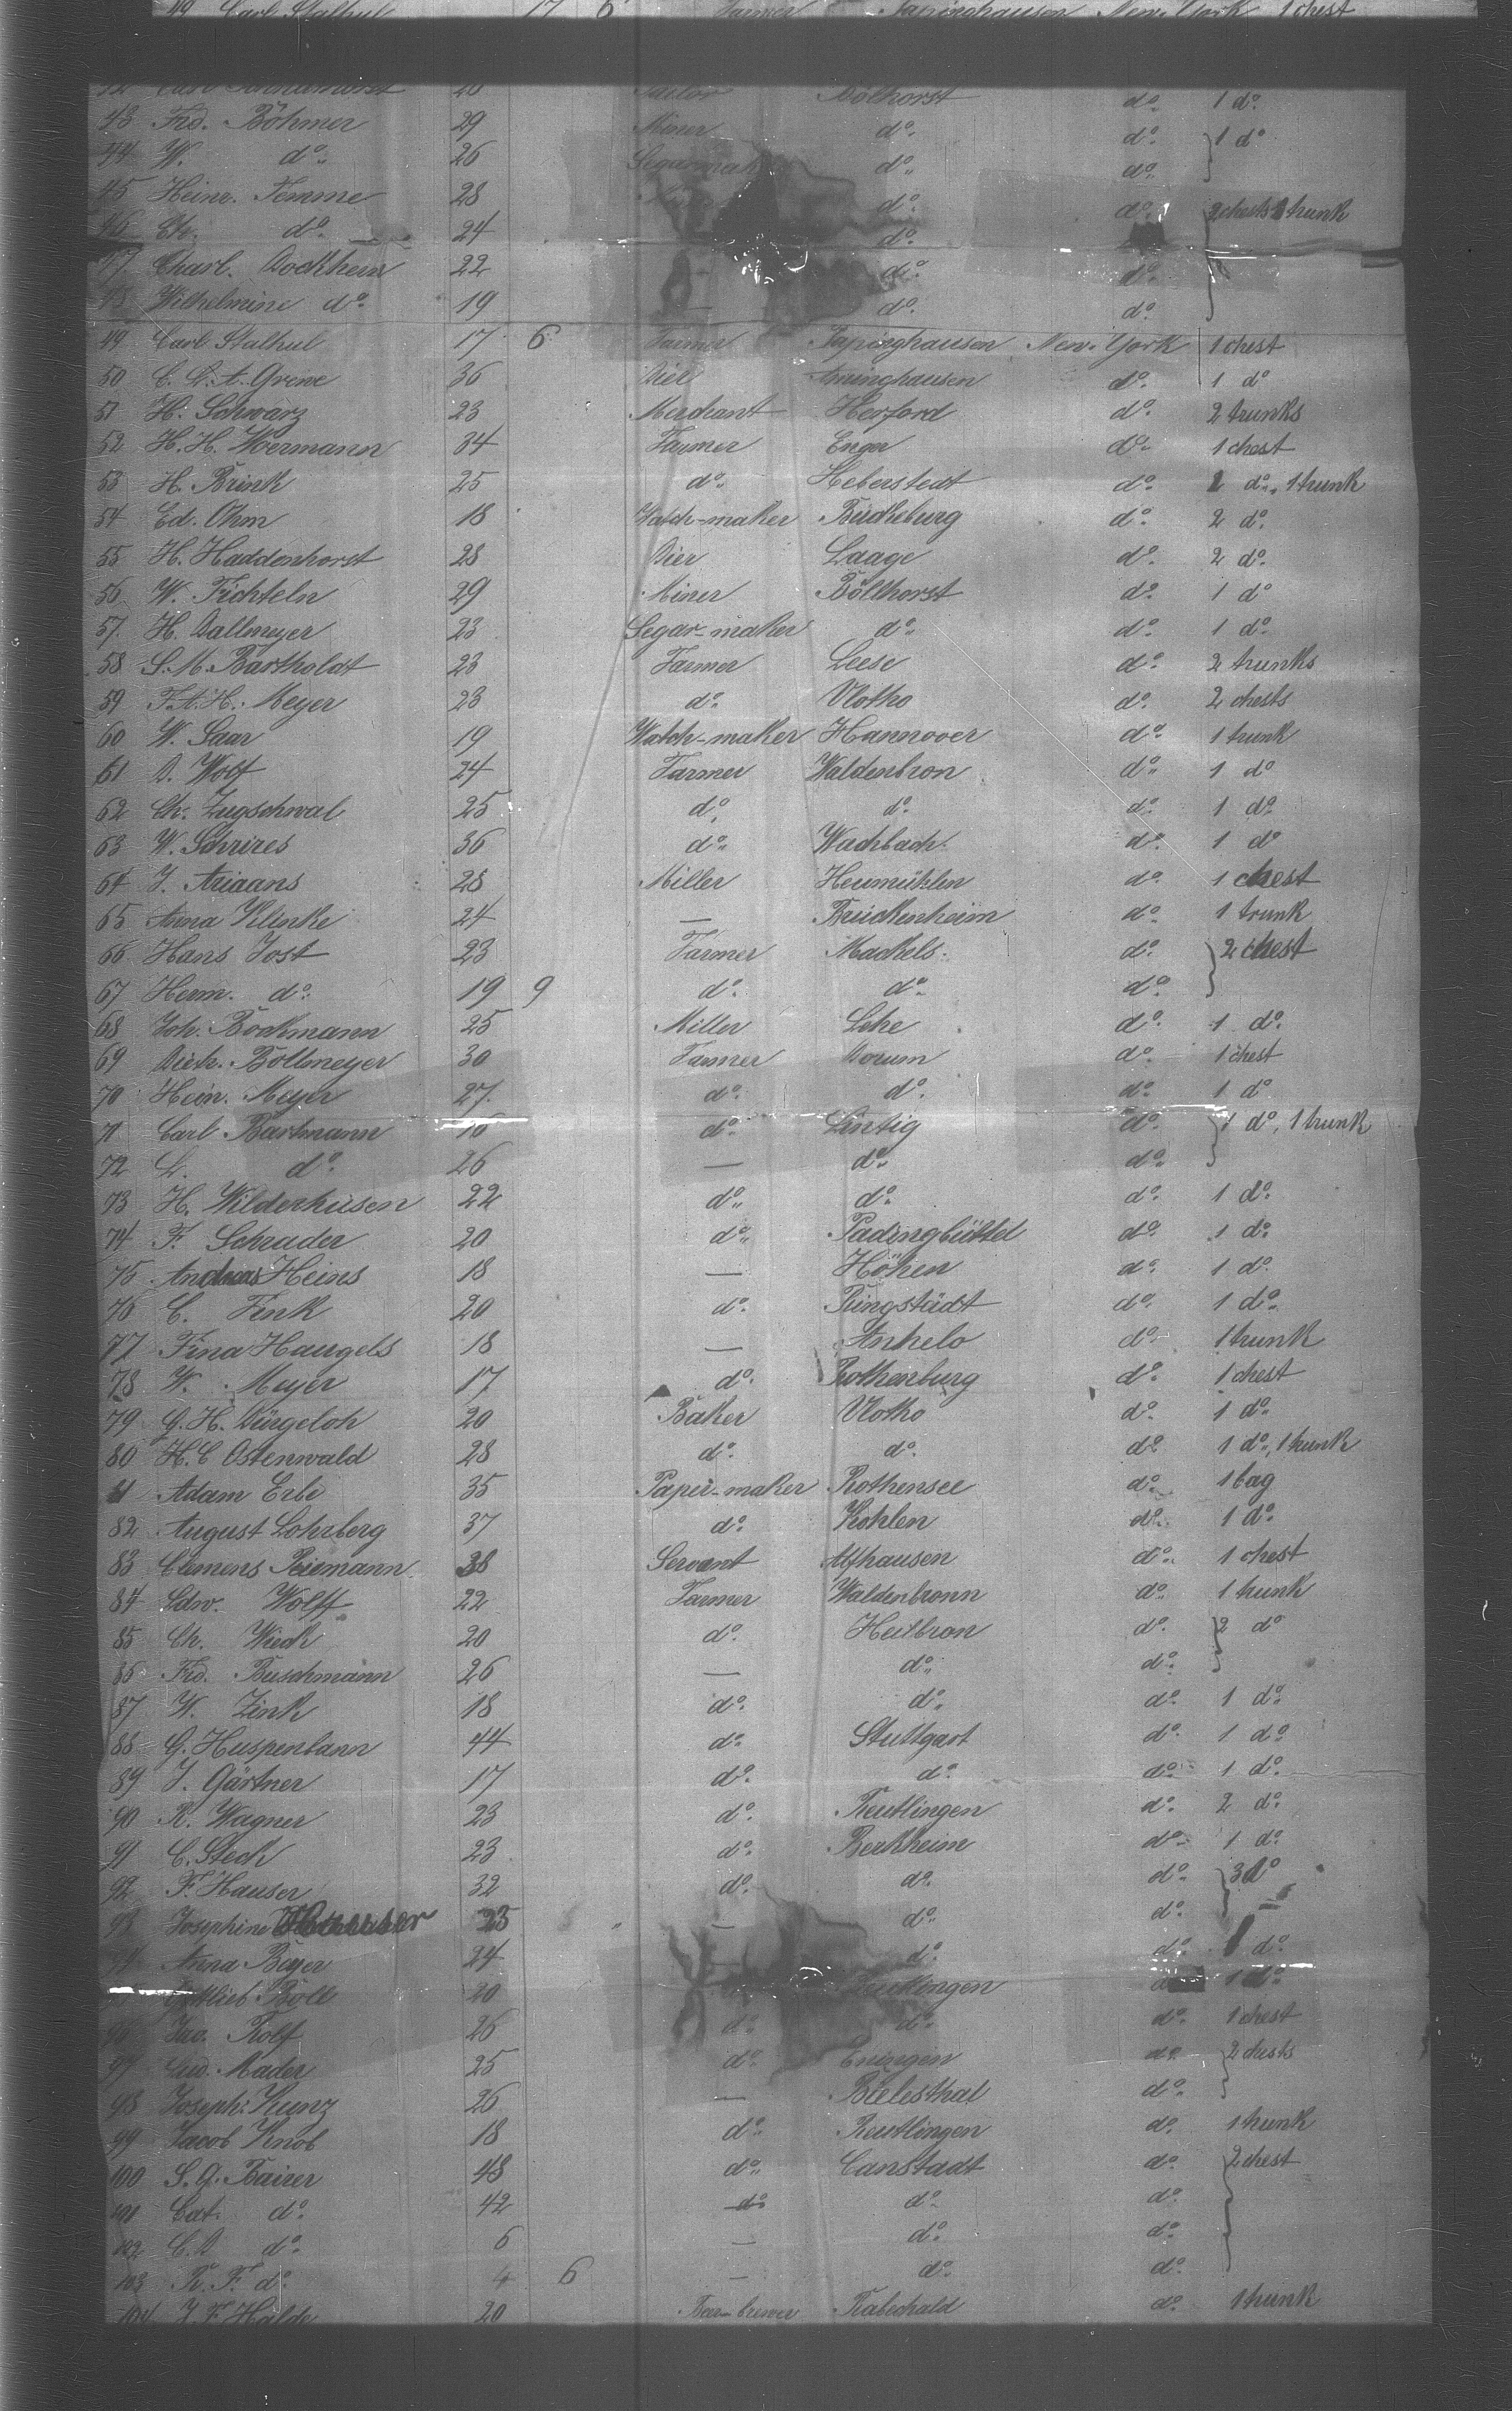 49 Carl Stalhut 17 6 Farmer Papinghausen New-York 1 chest
42 Carl 20 Tailor Bölhorst do. 1 do.
43 Frd. Böhmer 29 Miner do. do. 1 do
44 W. do. 26 Segarmak do. do.
45 Heinr. Temme 28 do. do. 2 chests 1 trunk
46 Ch. do. 24 do.
47 Charl. Dockhern 22 do. do.
48 Wilhelmine do. 19 — do. do.
49 Carl Stalhut 17 6 Farmer Papinghausen New-York 1 chest
50 C. D. A. Greve 36 Dier Aminghausen do. 1 do
51 H. Schwarz 23 Merchant Herford do. 2 trunks
52 H. H. Woermann 34 Farmer Enger do. 1 chest
53 H. Brink 25 do. Heberstedt do. 1 do., 1 trunk
54 Ed. Ohm 18 Watch-maker Bückeburg do. 2 do.
55 H. Haddenhorst 28 Dier Laage do. 2 do.
56 W. Tichteln 29 Miner Böllhorst do. 1 do
57. H. Dallmeyer 23 Segar-maker do. do. 1 do.
58 S. M. Bartholdt 23 Farmer Leese do. 2 trunks
59 F. A. H. Meyer 23 do. Vlotho do. 2 chests
60 W. Saar 19 Watch-maker Hannover do. 1 trunk
61 D. Wolf 24 Farmer Waldenbron do. 1 do
62 Ch. Zugschwal 25 do. do. do. 1 do.
63 W. Schrires 36 do. Wachbach. do. 1 do
64 J. Ariaans 28 Miller Heumühlen do. 1 chest
65 Anna Klinke 24 — Brückenheim do. 1 trunk
66 Hans Jost 23 Farmer Mackels. do. 2 chest
67 Herm. do. 19 9 do. do. do.
68 Joh. Bockmann 25 Miller Lehe do. 1 do.
69 Dietr. Böllmeyer 30 Farmer Dorum do. 1 chest
70 Hein. Meyer 27. do. do. do. 1 do
71 Carl Bartmann 16 do. Lintig do. 1 do, 1 trunk
72 L. do. 26 — do. do.
73 H. Wilderhusen 22 do. do. do. 1 do.
74 F. Schrader 20 do. Padingbüttel do. 1 do.
75 Andreas Heins 18 — Höhen do. 1 do.
76 C. Fink 20 do. Püngstädt do. 1 do.
77 Fina Haugels 18 — Anhelo do. 1 trunk
78 W. Meyer 17 do. Rothenburg do. 1 chest
79 G. H. Dürgeloh 20 Baker Vlotho do. 1 do.
80 H. C Ostenwald 28 do. do. do. 1 do., 1 trunk
81 Adam Erbe 35 Paper-maker Rothensee do. 1 bag
82 August Lohrberg 37 do. Kohlen do. 1 do.
83 Clemens Riemann 38 Servant Alfhausen do. 1 chest
84 Edw. Wolff 22 Farmer Waldenbronn do. 1 trunk
85 Ch. Wiech 20 do. Heilbron do. 2 do
86 Frd. Buschmann 26 — do. do.
87 W. Zink 18 do. do. do. 1 do.
88 G. Huspenbann 44 do. Stuttgart do. 1 do.
89 J. Gärtner 17 do. do. do. 1 do.
90 R. Wagner 23 do. Reutlingen do. 2 do.
91 C. Stech 23 do. Berkheim do. 1 do.
92 F. Hauser 32 do. do. do. 3 do
93 Josephine Hauser 25 — do. do.
94 Anna Beyer 24 — do. do. 1 do.
95 Gottlieb Böll 20 Reutlingen do. 1 do.
96 Jac. Rolf 26 do. do. do. 1 chest
97 Lud. Mader 25 do. Eningen do. 2 chests
98 Joseph. Kunz 26 — Bielesthal do.
99 Jacob Knob 18 do. Reutlingen do. 1 trunk
100 S. G. Bairer 48 do. Canstadt do. 2 chest
101 Cat. do. 42 do. do. do.
102 C. D do. 6 — do. do.
103 R. F. do. 4 6 — do. do.
104 J. F. Halde 20 Beer-brewer Rabechald do. 1 trunk